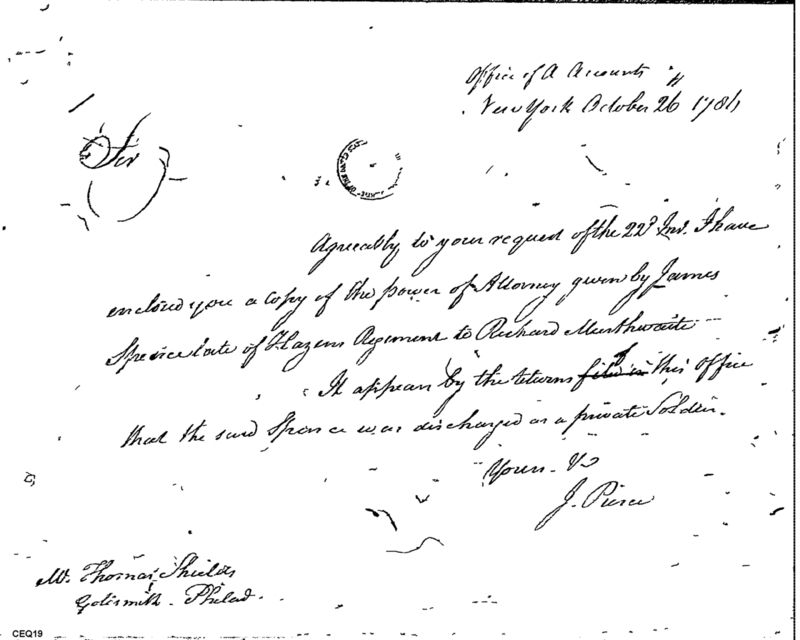 Office of A Accounts
New York October 26 178
Sir
Agreeably to your request of the 22d Inst. I have
enclosed you a Copy of the power of Attorney given by James
Spence late of Hazens Regiment to Richard Murthwaite
It appears by the returns filed in this Office
that the said Spence was discharged as a private Soldier.
Yours &c
J. Pierce
Mr. Thomas Shields
Goldsmith. Philad.
CEQ19